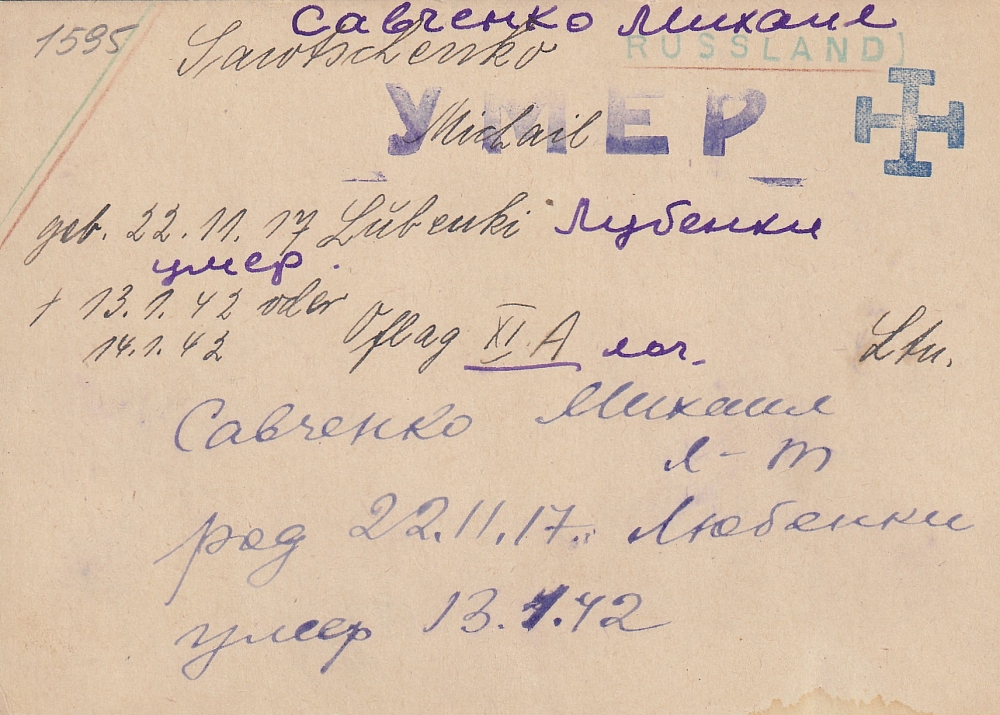 1595 Савченко Михаил
Sawtschenko RUSSLAND
УМЕР
Michail
geb. 22.11.17 Lŭbenki Лубенки
умер.
+ 13.1.42 oder
14.1.42 Oflag XI A лаг. Ltn.
Савченко Михаил
л-т
род 22.11.17. Любенки
умер 13.1.42